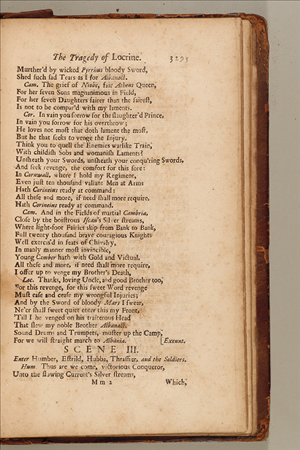 The Tragedy of Locrine. 3295
Murther'd by wicked Pyrrhus bloody Sword,
Shed such sad Tears as I for Albanact.
Cam. The grief of Niobe, fair Athens Queen,
For her seven Sons magnanimous in Field,
For her seven Daughters fairer than the fairest,
Is not to be compar'd with my laments.
Cor. In vain you sorrow for the slaughter'd Prince,
In vain you sorrow for his overthrow;
He loves not most that doth lament the most,
But he that seeks to venge the Injury.
Think you to quell the Enemies warlike Train,
With childish Sobs and womanish Laments?
Unsheath your Swords, unsheath your conqu'ring Swords,
And seek revenge, the comfort for this sore:
In Cornwall, where I hold my Regiment,
Even just ten thousand valiant Men at Arms
Hath Corineius ready at command:
All these and more, if need shall more require.
Hath Corineius ready at command.
Cam. And in the Fields of martial Cambria,
Close by the boistrous Iscan's Silver streams,
Where light-foot Fairies skip from Bank to Bank,
Full twenty thousand brave couragious Knights
Well exercis'd in feats of Chivalry,
In manly manner most invincible,
Young Camber hath with Gold and Victual.
All these and more, if need shall more require,
I offer up to venge my Brother's Death,
Loc. Thanks, loving Uncle, and good Brother too,
For this revenge, for this sweet Word revenge
Must ease and cease my wrongful Injuries;
And by the Sword of bloody Mars I swear,
Ne'er shall sweet quiet enter this my Front,
'Till I be venged on his traiterous Head
That slew my noble Brother Albanact.
Sound Drums and Trumpets, muster up the Camp,
For we will straight march to Albania. [Exeunt.
SCENE III.
Enter Humber, Estrild, Hubba, Thrassier, and the Soldiers.
Hum. Thus are we come, victorious Conqueror,
Unto the flowing Current's Silver streams,
M m 2 Which,